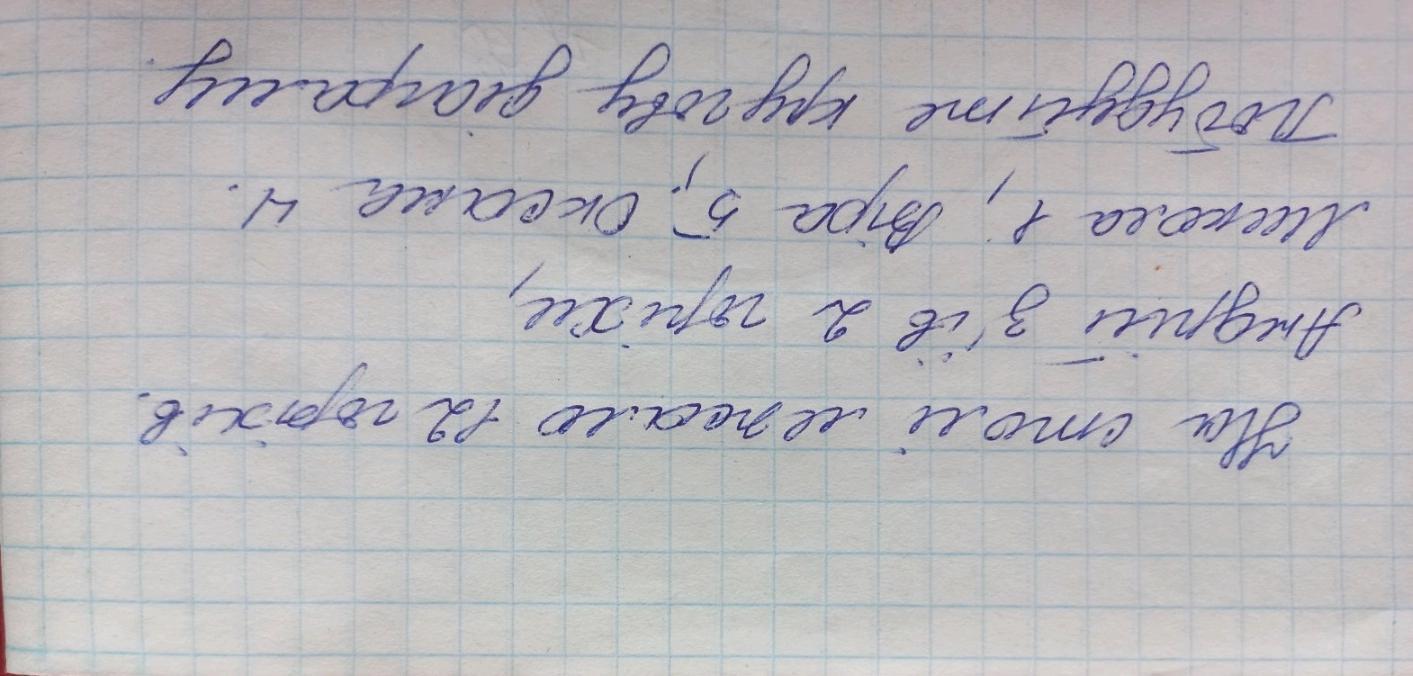 На столі лежало 12 горіхів.
Андрій з'їв 2 горіхи,
Микола 1, Віра 5, Оксана 4.
Побудуйте кругову діаграму.